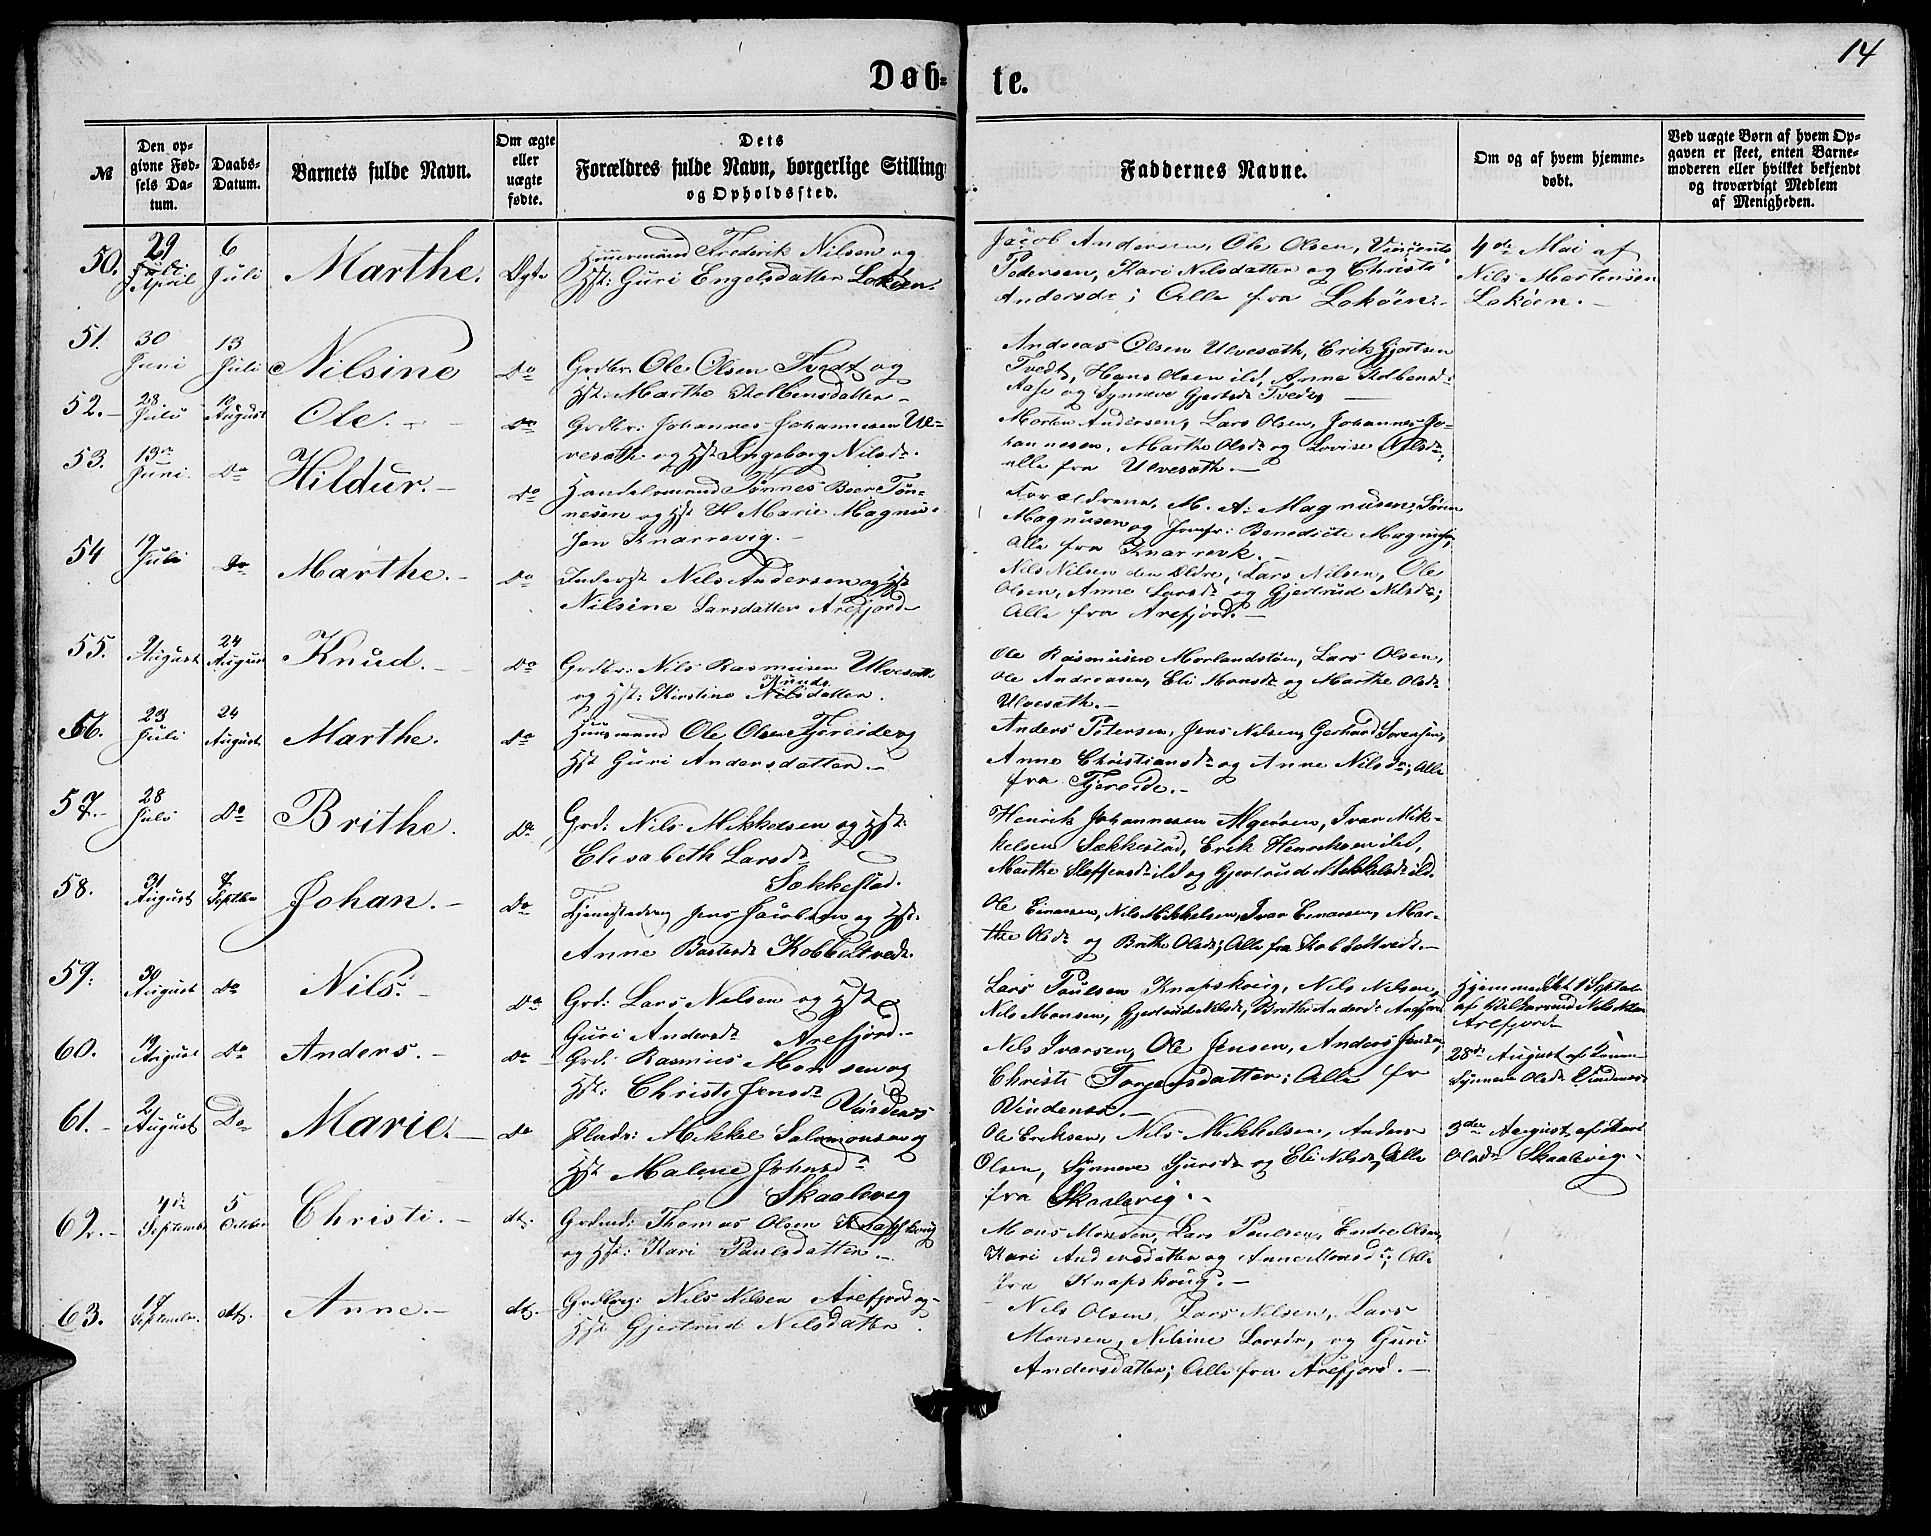 14
Døb-te.
№
Den op-
givne Fød-
sels Da-
tum.
Daabs-
Datum.
Barnets fulde Navn.
Om ægte
eller
uægte
fødte.
Dets
Forældres fulde Navn, borgerlige Stilling
og Opholdssted.
Faddernes Navne.
Om og af hvem hjemme-
døbt.
Ved uægte Børn af hvem Op-
gaven er skeet, enten Barne-
moderen eller hvilket bekjendt
og troværdigt Medlem
af Menigheden.
50. 29 April 6 Juli Marthe. Ægte
Huusmand Frederik Nilsen og
Hst: Guri Engelsdatter Loköen.
Jacob Andersen, Ole Olsen, Vincents
Pedersen, Kari Nilsdatter og Christi
Andersdr; Alle fra Loköen.
4de Mai af
Nils Mortensen
Loköen.-
51. 30 Juni 13 Juli Nilsine Do
Grdbr. Ole Olsen Tvedt og
Hst: Marthe Kolbensdatter-
Andreas Olsen Ulvesæth, Erik Gjertsen
Tvedt, Hans Olsen ibd, Anne Kolbensdr
Aase og Synneve Gjertsdr Tvedt
52.- 28 Juli August Ole.- Do
Grdbr: Johannes Johannesen Ul-
vesæth og Hst Ingeborg Nilsdr.
Morten Andersen, Lars Olsen, Johannes Jo-
hannesen, Marthe Olsdr og Lovise Nilsdr;
alle fra Ulvesæth.-
53. 19de Juni. Do Hildur.- Do
Handelsmand Tønnes Beer Tøn-
nesen og Hst H Marie Magnus-
sen Knarrevig.-
Forældrene, M. A. Magnusen, Sören
Magnusen og Jomfr: Benedicte Magnusen,
Alle fra Knarrevik.-
54 19 Juli Do Marthe.- Do
Inderst Nils Andersen og Hst
Nilsine Larsdatter Arefjord
Nils Nilsen den Ældre, Lars Nilsen, Ole
Olsen, Anne Larsdr og Gjertrud Nilsdr;
Alle fra Arefjord.-
55. August 24 August Knud.- Do
Grdbr: Nils Rasmusen Ulvesæth
og Hst: Kirstine Knuds Nilsdatter.
Ole Rasmusen Morlandstøen, Lars Olsen,
Ole Andreasen, Eli Monsdr og Marthe Olsdr
Ulvesæth.-
56. 23 Juli 24 August Marthe. Do
Huusmand Ole Olsen Fjereide og
Hst Guri Andersdatter.-
Anders Petersen, Jens Nilsen, Gerhard Sörensen,
Anne Christiansdr og Anne Nilsdr; Alle
fra Fjereide.-
57.- 28 Juli Do Brithe. Do
Grd: Nils Mikkelsen og Hst:
Elesabeth Larsdr
Sækkestad.
Henrik Johannesen Algeröen, Ivar Mik-
kelsen Sækkestad, Erik Henriksen ibd,
Marthe Steffensdr ibd og Gjertrud Mikkelsdr ibd.
58. August 7 Septbr Johan.- Do
Tjenestedreng Jens Jacobsen og Hst:
Anne Kobbeltvedt.
Ole Einarsen, Nils Mikkelsen, Ivar Einarsen, Mar-
the Olsdr og Brithe Olsdr; Alle fra Kobbeltvedt.-
59. 30 August Do Nils.- Do
Grd: Lars Nilsen og Hst
Guri Andersdr Arefjord.-
Lars Paulsen Knapskoug, Nils Nilsen,
Nils Monsen, Gjertrud Nilsdr, Brithe Andersdr Arefjord
Hjemmedöbt 1 Septbr
af Nils Nilsen
Arefjord
60. 19 August Do Anders.- Do
Grd: Rasmus Monsen og
Hst: Christi Jensdr Vindenes
Nils Ivarsen, Ole Jensen, Anders Jensen,
Christi Torgersdatter; Alle fr
Vindenes.-
28de August af
Synneve Olsdr Vindenes
61.- 2 August Do Marie.- Do
Mikkel Salomonsen og
Hst Malene Johnsdr
Skaalevig
Ole Eriksen, Nils Mikkelsen, Anders
Olsen, Synneve Sjursdr og Eli Nilsdr Alle
fra Skaalevig.-
3die August af Kari
Olsdr Skaalevig.
62.- 4de September 5 October Christi.- dt.
Grdmd: Thomas Olsen Knapskoug
og Hst: Kari Paulsdatter.-
Mons Monsen, Lars Paulsen, Endre Olsen,
Kari Andersdatter og Anne Monsdr; Alle
fra Knapskoug.-
63. 17 September. dt. Anne.- dt.-
Grdbrg: Nils Nilsen Arefjord og-
Hst Gjertrud Nilsdatter.
Nils Olsen, Lars Nilsen, Lars
Monsen, Nilsine Larsdr, og Guri
Andersdatter; Alle fra Arefjord.-